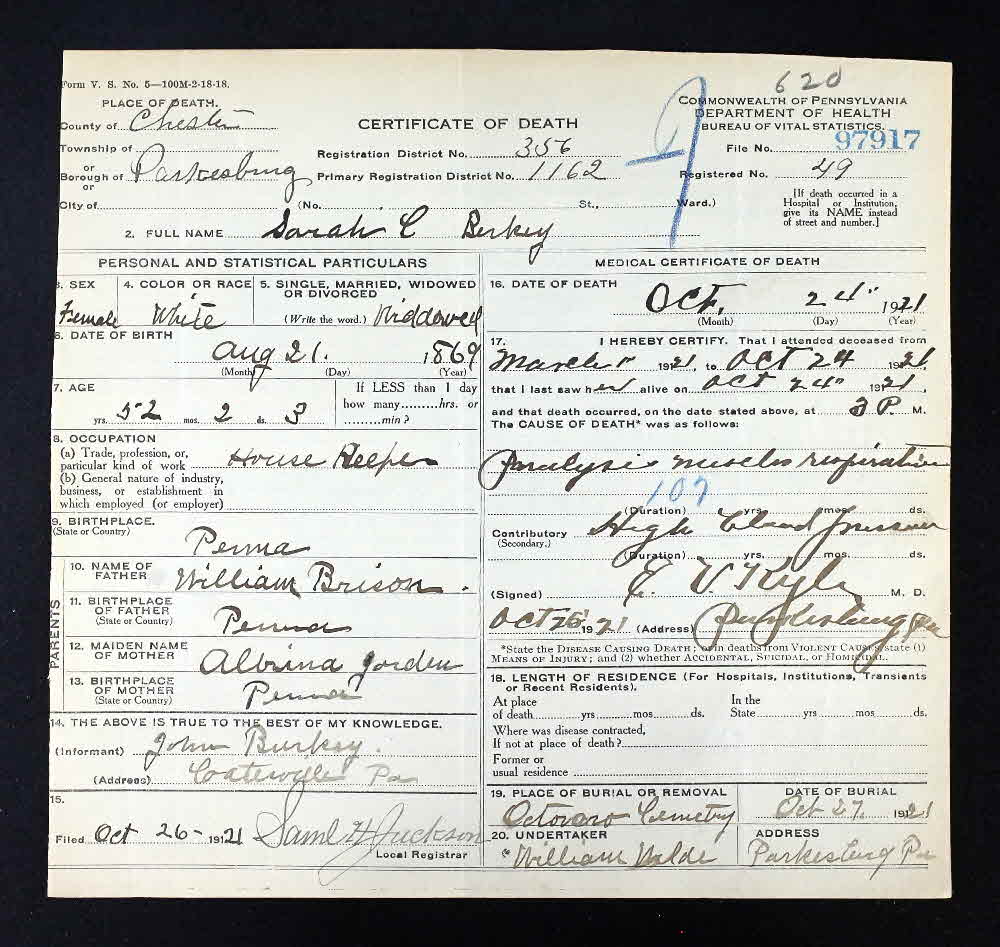 Form V. S. No. 5—100M-2-18-18.
620
PLACE OF DEATH.
County of Chester
CERTIFICATE OF DEATH
COMMONWEALTH OF PENNSYLVANIA
DEPARTMENT OF HEALTH
BUREAU OF VITAL STATISTICS.
Township of
or
Borough of Parkesburg
or
Registration District No. 356
File No. 97917
Primary Registration District No. 1162
Registered No. 49
City of (No. St., Ward.)
[If death occurred in a
Hospital or Institution,
give its NAME instead
of street and number.]
2. FULL NAME Sarah C Berkey
PERSONAL AND STATISTICAL PARTICULARS
3. SEX
Female
4. COLOR OR RACE
White
5. SINGLE, MARRIED, WIDOWED
OR DIVORCED
(Write the word.) Widdowed
6. DATE OF BIRTH
Aug 21. 1869
(Month) (Day) (Year)
7. AGE
52 yrs. 2 mos. 3 ds.
If LESS than 1 day
how many........hrs. or
........min?
8. OCCUPATION
(a) Trade, profession, or
particular kind of work House Keeper
(b) General nature of industry,
business, or establishment in
which employed (or employer)
9. BIRTHPLACE.
(State or Country)
Penna
PARENTS
10. NAME OF
FATHER William Brison.
11. BIRTHPLACE
OF FATHER
(State or Country) Penna
12. MAIDEN NAME
OF MOTHER Albrina Jorden
13. BIRTHPLACE
OF MOTHER
(State or Country) Penna
14. THE ABOVE IS TRUE TO THE BEST OF MY KNOWLEDGE.
(Informant) John Burkey.
(Address) Coatesville Pa
15.
Filed Oct 26- 1921 Saml H Jackson
Local Registrar
MEDICAL CERTIFICATE OF DEATH
16. DATE OF DEATH
Oct. 24" 1921
(Month) (Day) (Year)
17. I HEREBY CERTIFY. That I attended deceased from
March 1921, to Oct 24 1921,
that I last saw her alive on Oct 24" 1921,
and that death occurred, on the date stated above, at 3 P. M.
The CAUSE OF DEATH* was as follows:
Paralysis muscles respiration
107
(Duration) yrs. mos. ds.
Contributory High Blood Pressure
(Secondary.)
(Duration) yrs. mos. ds.
(Signed) E. V. Kyle M. D.
Oct 26 1921 (Address) Parkesburg Pa
*State the DISEASE CAUSING DEATH; or in deaths from VIOLENT CAUSES state (1)
MEANS OF INJURY; and (2) whether ACCIDENTAL, SUICIDAL, or HOMICIDAL.
18. LENGTH OF RESIDENCE (For Hospitals, Institutions, Transients
or Recent Residents).
At place
of death yrs mos. ds.
In the
State yrs mos ds.
Where was disease contracted,
If not at place of death?
Former or
usual residence
19. PLACE OF BURIAL OR REMOVAL
Octoraro Cemetry
DATE OF BURIAL
Oct 27. 1921
20. UNDERTAKER
William Walde
ADDRESS
Parkesburg Pa